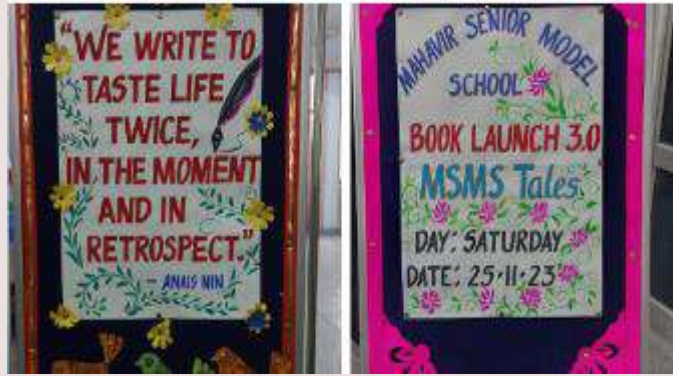 "WE WRITE TO
TASTE LIFE
TWICE,
IN THE MOMENT
AND IN
RETROSPECT."
- ANAIS NIN
MAHAVIR SENIOR MODEL
SCHOOL
BOOK LAUNCH 3.0
MSMS Tales
DAY: SATURDAY
DATE: 25.11.23